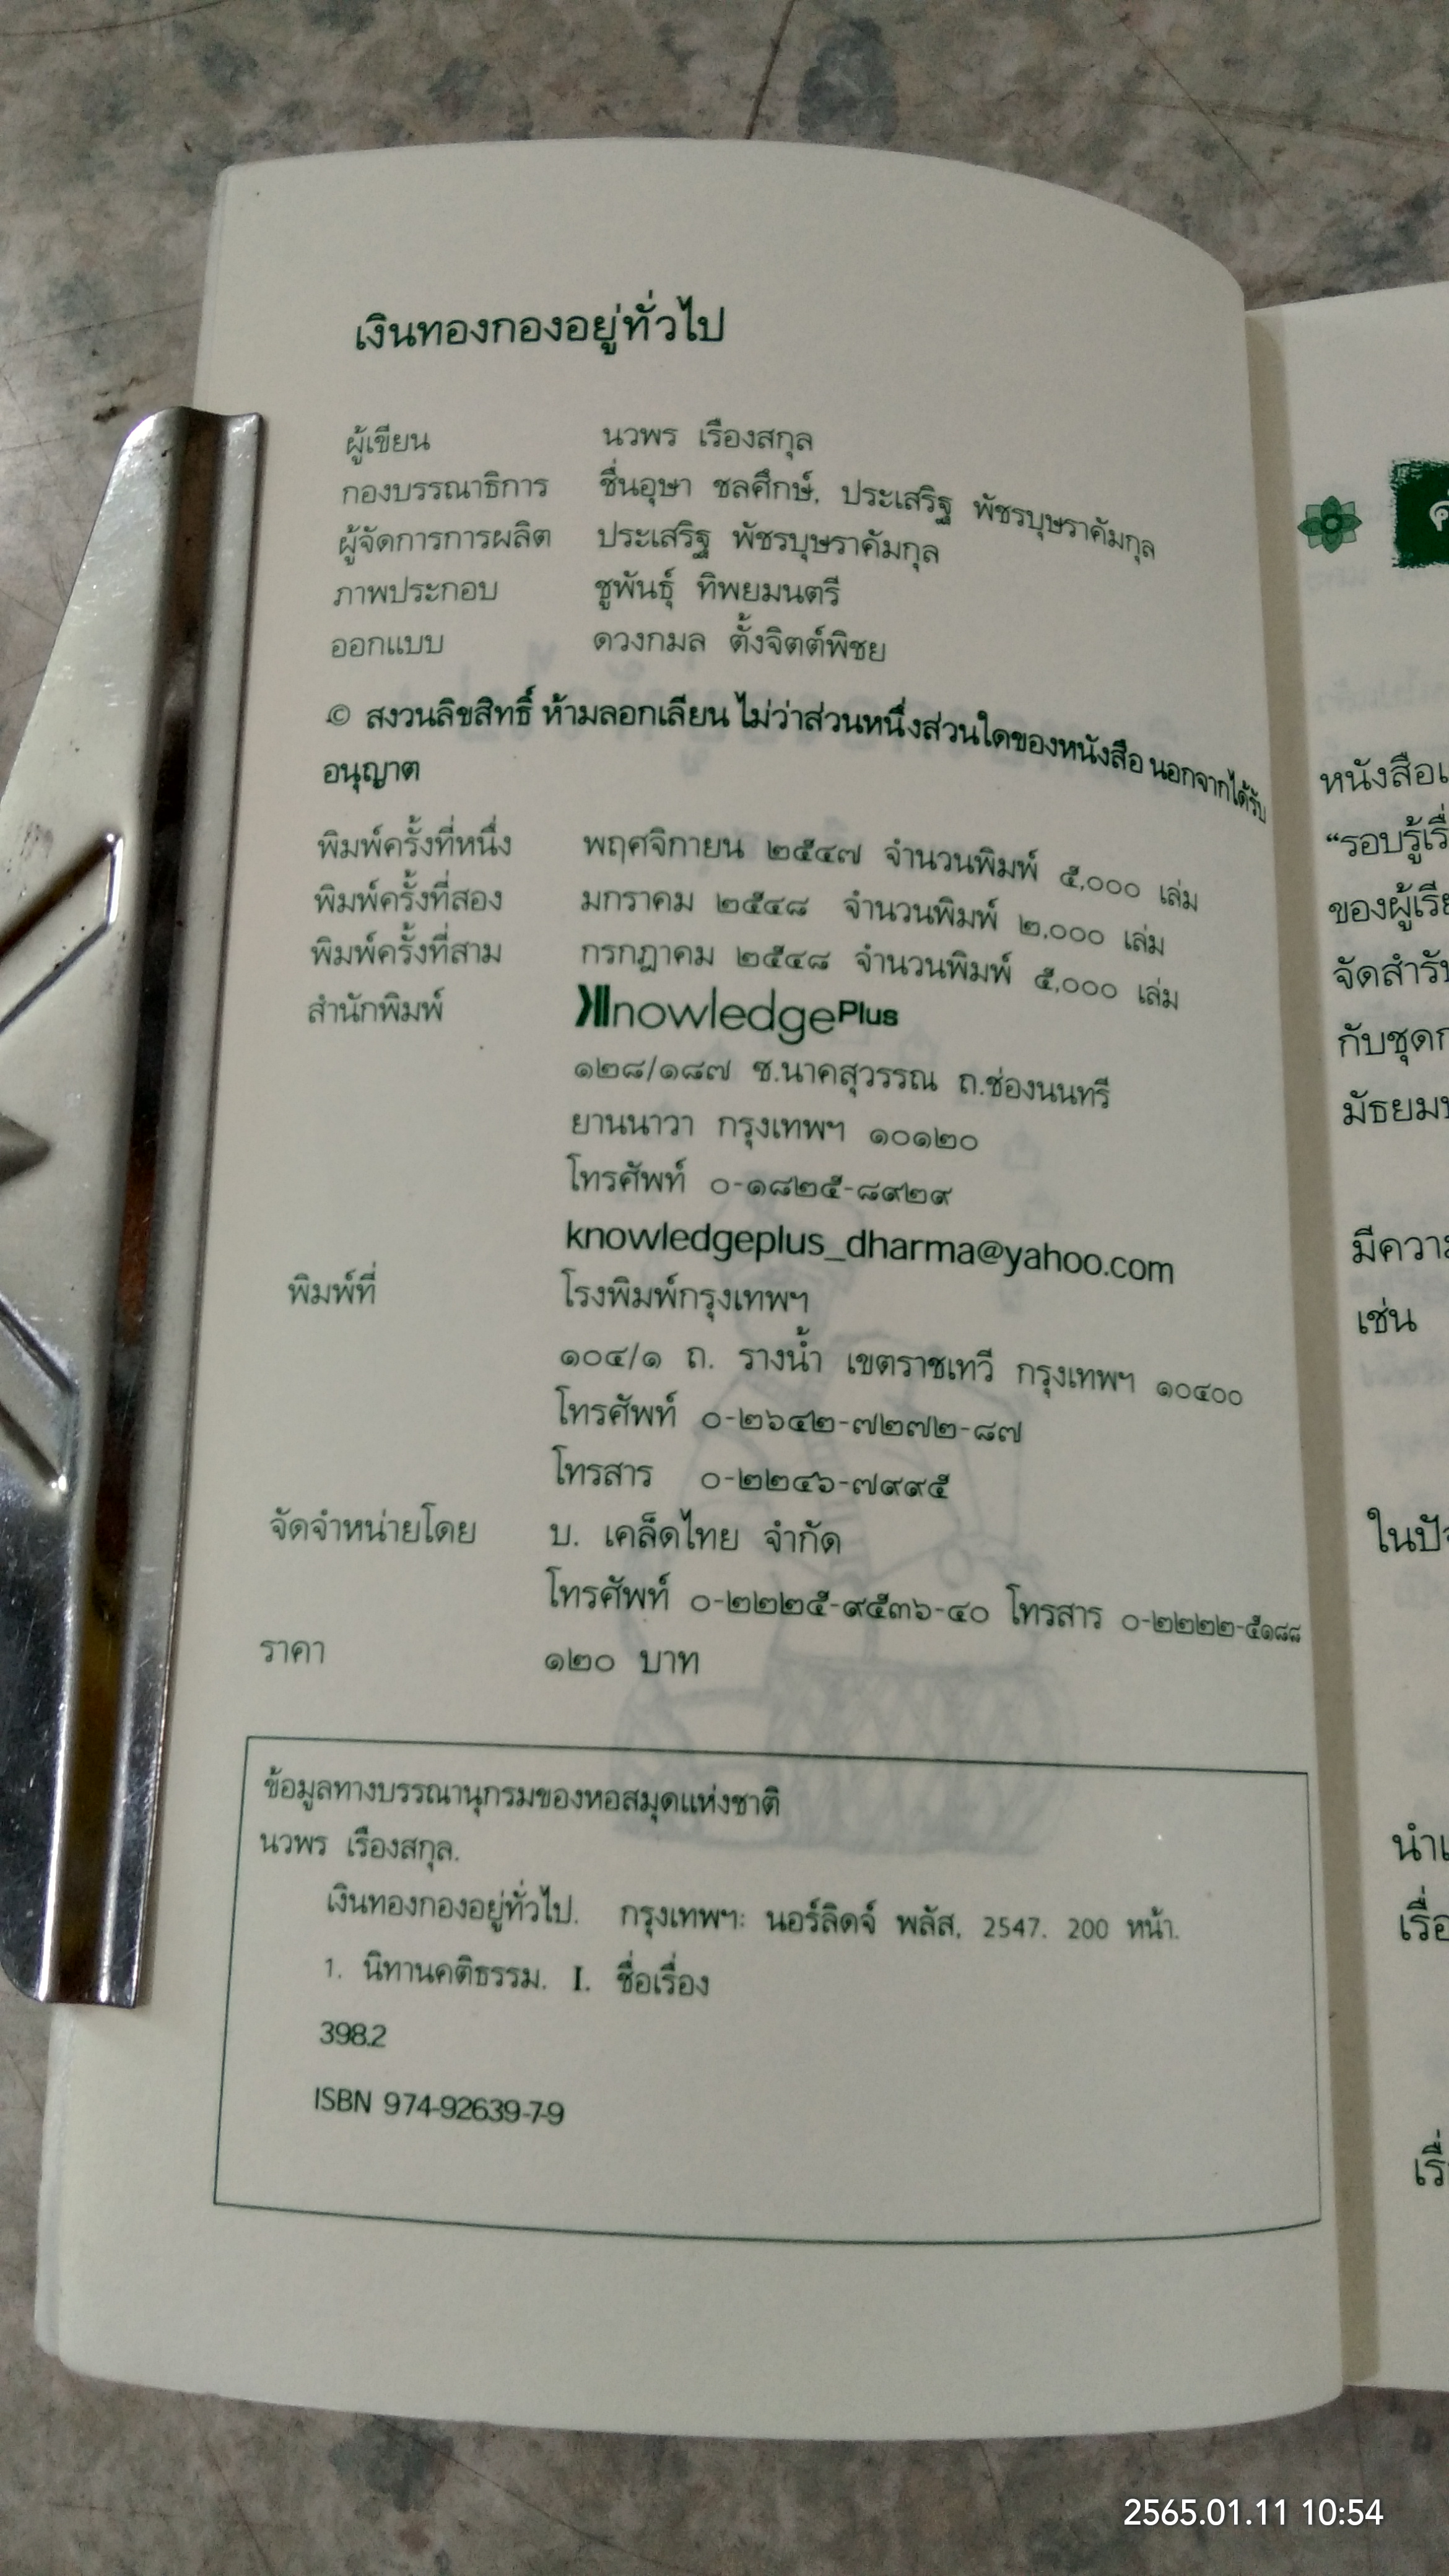 เงินทองกองอยู่ทั่วไป
ผู้เขียน นวพร เรืองสกุล
กองบรรณาธิการ ชื่นอุษา ชลศึกษ์, ประเสริฐ พัชรบุษราคัมกุล
ผู้จัดการการผลิต ประเสริฐ พัชรบุษราคัมกุล
ภาพประกอบ ชูพันธุ์ ทิพยมนตรี
ออกแบบ ดวงกมล ตั้งจิตต์พิชย
© สงวนลิขสิทธิ์ ห้ามลอกเลียน ไม่ว่าส่วนหนึ่งส่วนใดของหนังสือ นอกจากได้รับ
อนุญาต
พิมพ์ครั้งที่หนึ่ง พฤศจิกายน ๒๕๔๗ จำนวนพิมพ์ ๕,๐๐๐ เล่ม
พิมพ์ครั้งที่สอง มกราคม ๒๕๔๘ จำนวนพิมพ์ ๒,๐๐๐ เล่ม
พิมพ์ครั้งที่สาม กรกฎาคม ๒๕๔๘ จำนวนพิมพ์ ๕,๐๐๐ เล่ม
สำนักพิมพ์ KnowledgePlus
๑๒๘/๑๘๗ ซ.นาคสุวรรณ ถ.ช่องนนทรี
ยานนาวา กรุงเทพฯ ๑๐๑๒๐
โทรศัพท์ ๐-๑๘๒๕-๘๙๒๙
knowledgeplus_dharma@yahoo.com
พิมพ์ที่ โรงพิมพ์กรุงเทพฯ
๑๐๔/๑ ถ. รางน้ำ เขตราชเทวี กรุงเทพฯ ๑๐๔๐๐
โทรศัพท์ ๐-๒๖๔๒-๗๒๗๒-๘๗
โทรสาร ๐-๒๒๔๖-๗๙๙๕
จัดจำหน่ายโดย บ. เคล็ดไทย จำกัด
โทรศัพท์ ๐-๒๒๒๕-๙๕๓๖-๔๐ โทรสาร ๐-๒๒๒๒-๕๑๘๘
ราคา ๑๒๐ บาท
ข้อมูลทางบรรณานุกรมของหอสมุดแห่งชาติ
นวพร เรืองสกุล.
เงินทองกองอยู่ทั่วไป. กรุงเทพฯ: นอร์ลิดจ์ พลัส, 2547. 200 หน้า.
1. นิทานคติธรรม. I. ชื่อเรื่อง
398.2
ISBN 974-92639-7-9
หนังสือเ
“รอบรู้เรื่
ของผู้เรีย
จัดสำรับ
กับชุดก
มัธยมป
มีความ
เช่น
ในปัจ
นำเ
เรื่อ
2565.01.11 10:54